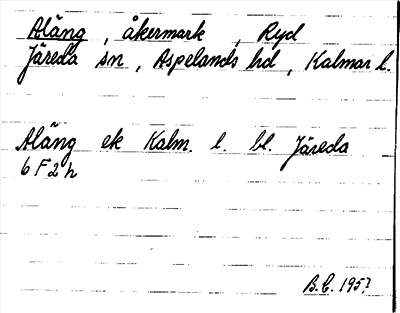 Aläng, åkermark, Ryd
Järeda sn, Aspelands hd, Kalmar l.
Aläng ek Kalm. l. bl. Järeda
6 F 2 h
B.E. 1957